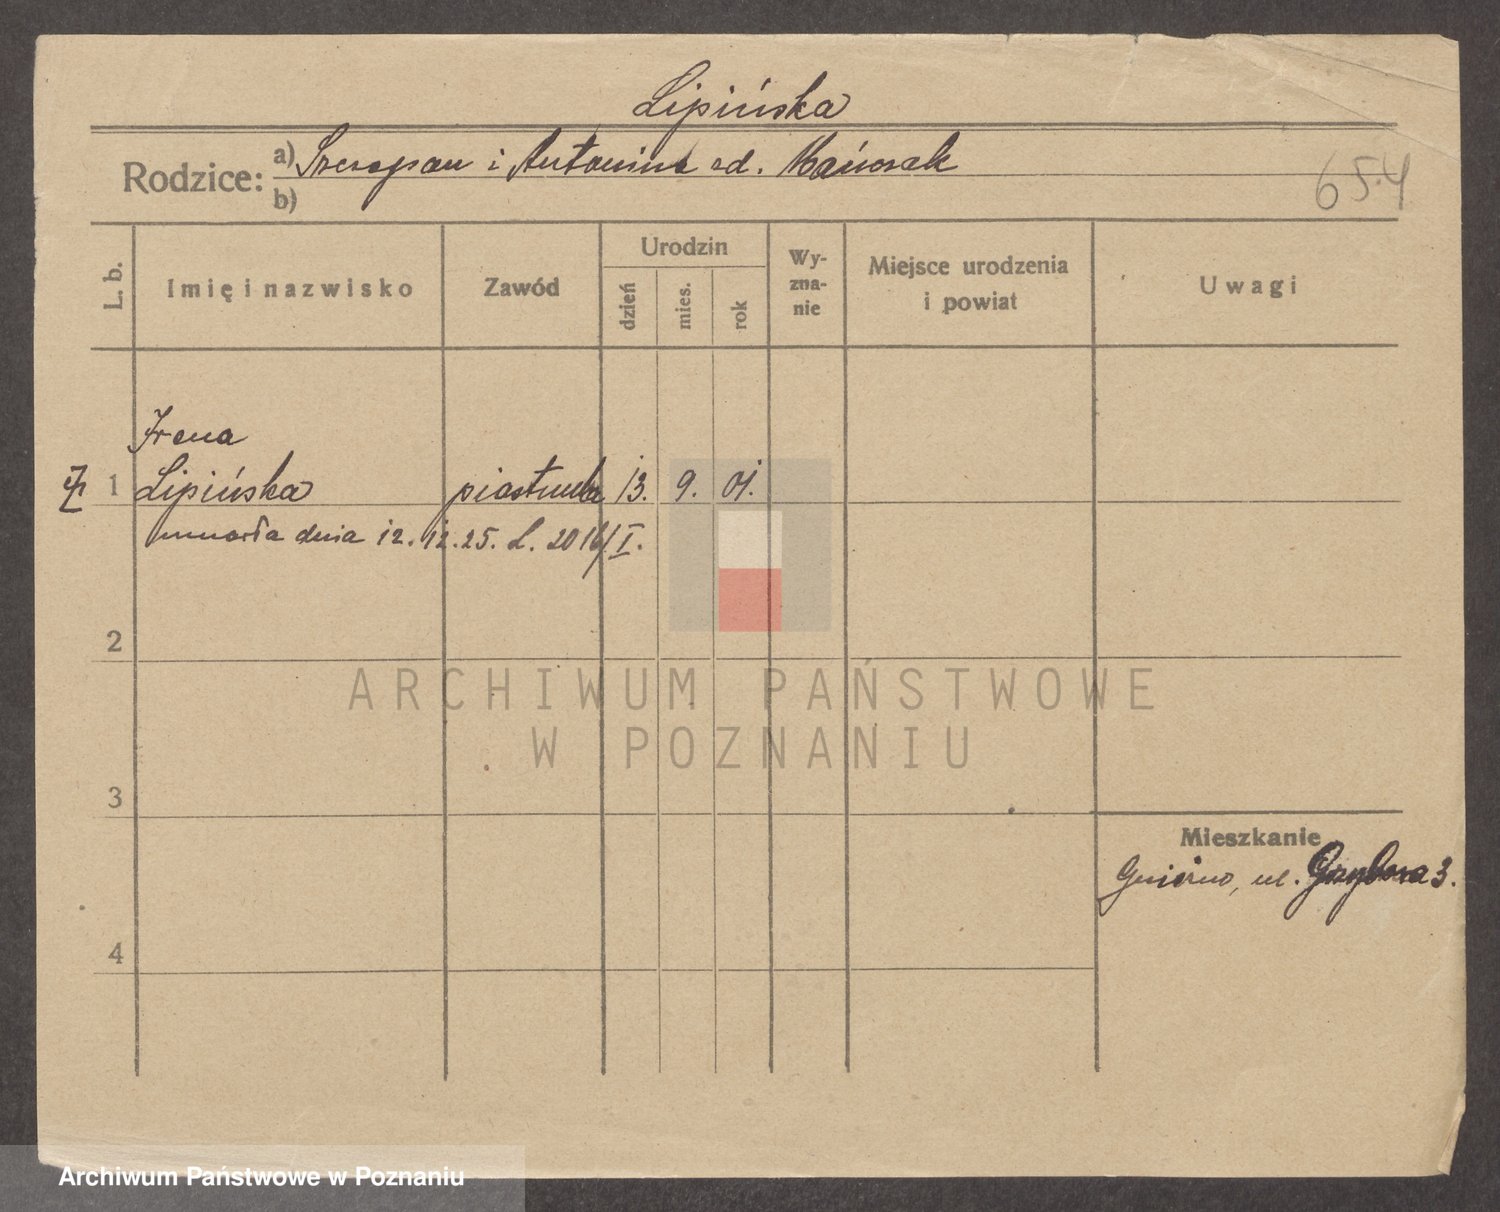 Lipińska
Rodzice: a) Szczepan i Antonina zd. Mańczak
b)
654
L. b.
Imię i nazwisko
Zawód
Urodzin
dzień
mies.
rok
Wy-
zna-
nie
Miejsce urodzenia
i powiat
Uwagi
Irena
1 Lipińska piastunka 13. 9. 01.
umarła dnia 12. 12. 25. L. 2016/I.
2
3
4
Mieszkanie
Gniezno, ul. 3.
ARCHIWUM PAŃSTWOWE
W POZNANIU
Archiwum Państwowe w Poznaniu